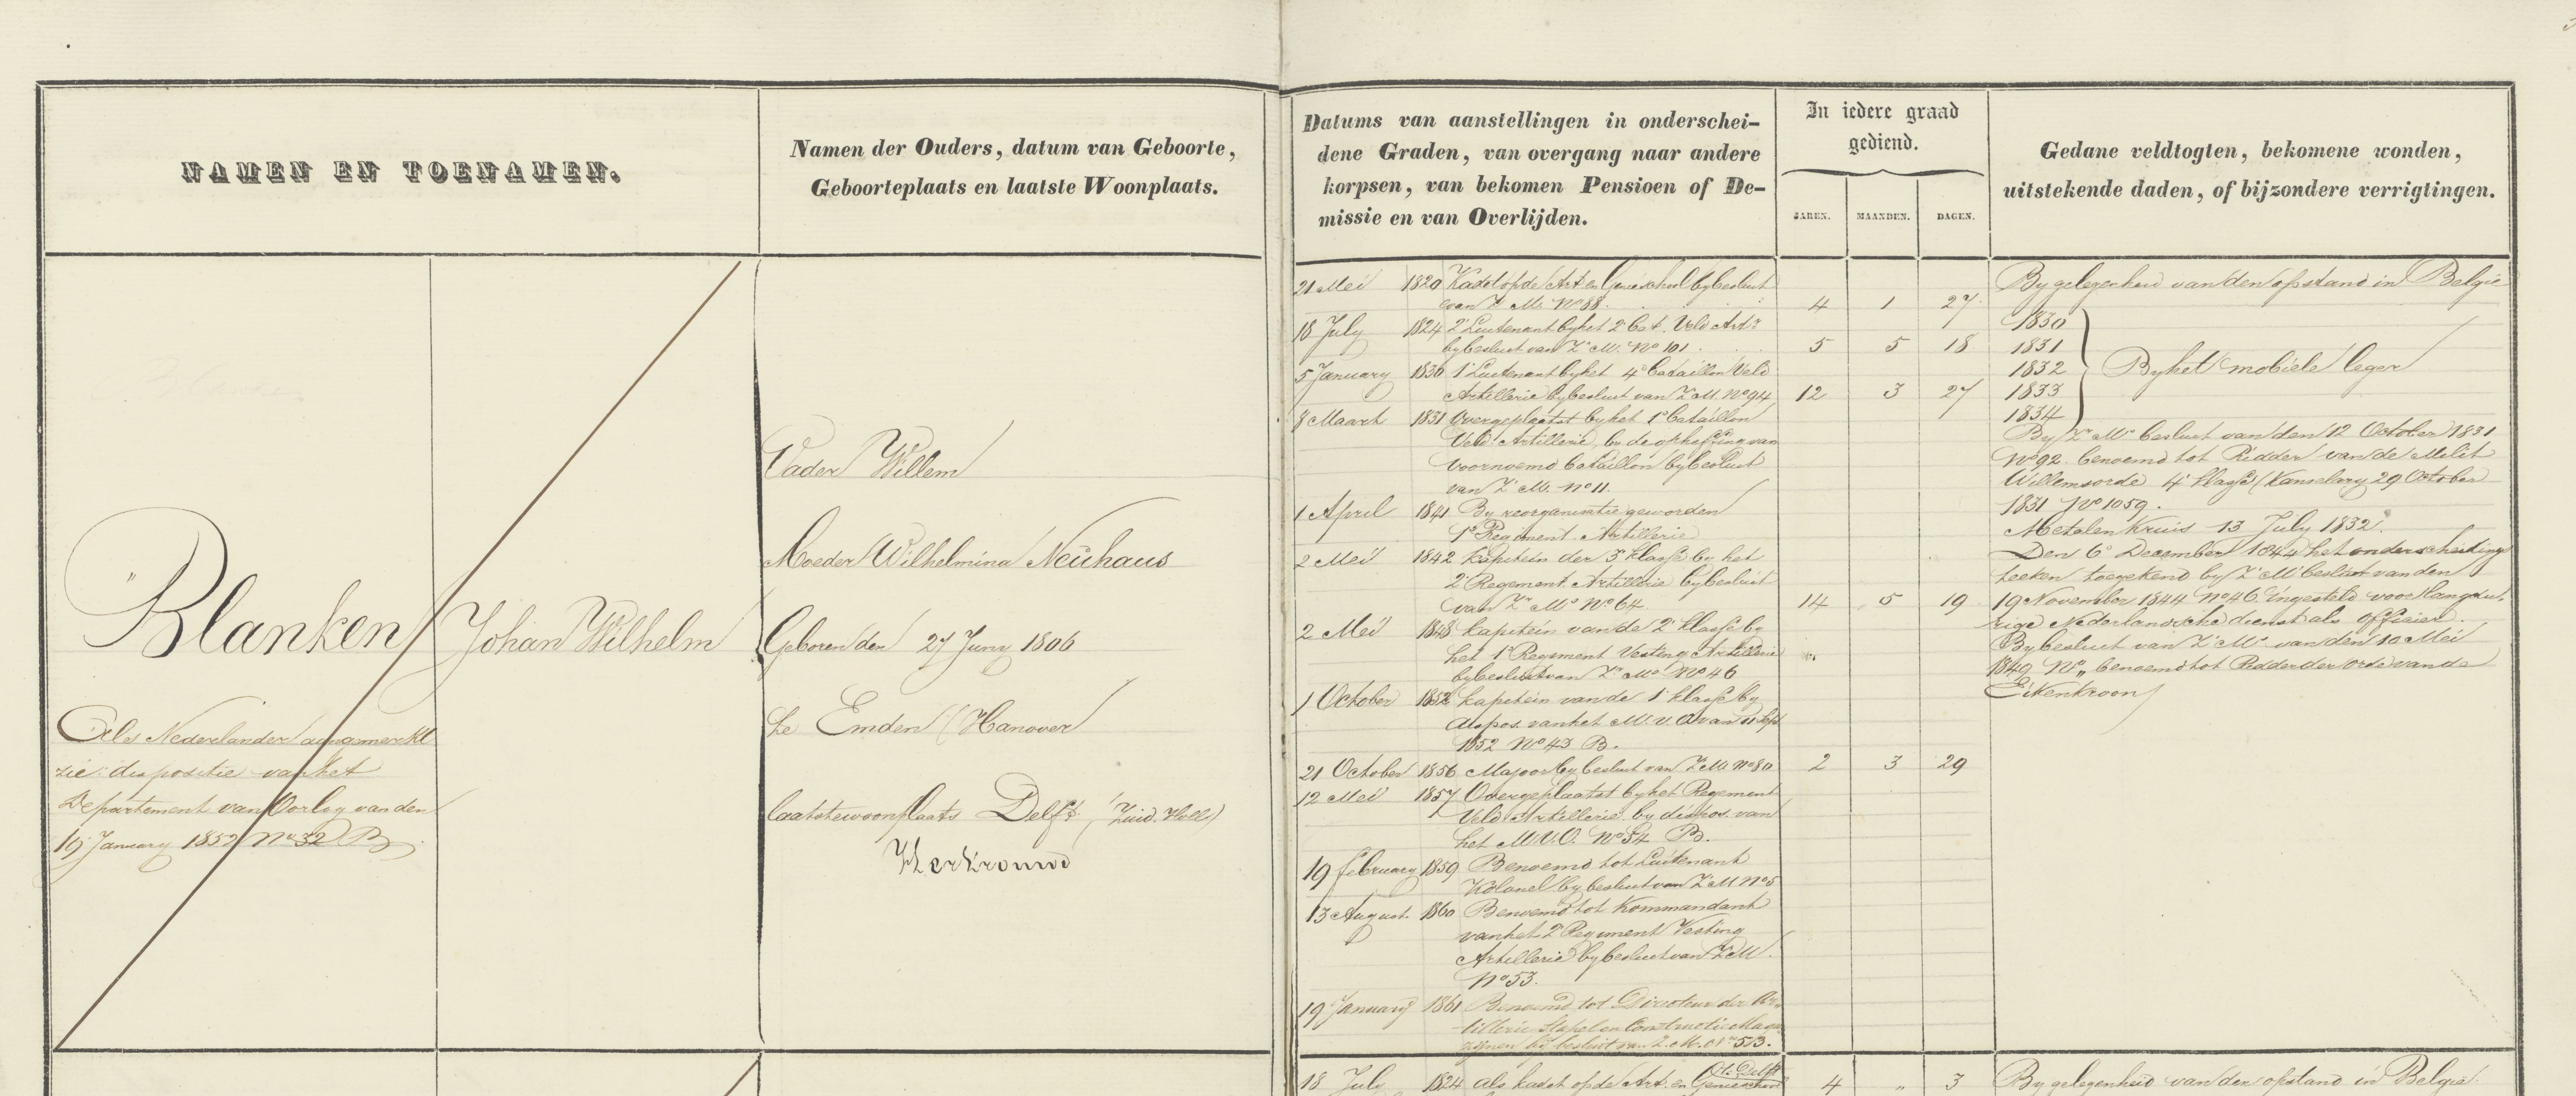 NAMEN EN TOENAMEN.
Namen der Ouders, datum van Geboorte,
Geboorteplaats en laatste Woonplaats.
Datums van aanstellingen in onderschei-
dene Graden, van overgang naar andere
korpsen, van bekomen Pensioen of De-
missie en van Overlijden.
In iedere graad
gediend.
JAREN. MAANDEN. DAGEN.
Gedane veldtogten, bekomene wonden,
uitstekende daden, of bijzondere verrigtingen.
Blanken Johan Wilhelm
Als Nederlander aangemerkt
zie dispositie van het
Departement van Oorlog van den
19 January 1852 No 32 B
Vader Willem
Moeder Wilhelmina Neuhaus
Geboren den 27 Juny 1806
te Emden (Hanover
laatste woonplaats Delft (Zuid. Holl)
21 Mei 1820 Kadet op de Art. en Genie school by besluit
van Z M. No 88. 4 1 27
18 July 1824 2e Luitenant by het 2e Bat. Veld Art.
by besluit van Z M. No 101. 5 5 18
5 January 1830 1e Luitenant by het 4e Bataillon Veld
Artillerie by besluit van Z M No 94 12 3 27
8 Maart 1831 Overgeplaatst by het 1e bataillon
Veld Artillerie, by de opheffing van
voornoemd bataillon by besluit
van Z M. No 11.
1 April 1841 By reorganisatie geworden
1e Regiment Artillerie
2 Mei 1842 Kapitein der 3e klasse by het
2e Regement Artillerie by besluit
van Zr Ms No 64. 14 5 19
2 Mei 1848 Kapitein van de 2e klasse by
het 1e Regiment Vesting Artillerie
by besluit van Zr Ms No 46
1 October 1852 Kapitein van de 1e klasse by
dispos. van het M. v. O van 11 Sept
1852 No 43 B.
21 October 1856 Majoor by besluit van Z M. No 80 2 3 29
12 Mei 1857 Overgeplaatst by het Regement
Veld Artillerie by dispos. van
het M.V.O. No 54 B.
19 february 1859 Benoemd tot Luitenant
Kolonel by besluit van Z M No 5
13 August. 1860 Benoemd tot Kommandant
van het 2e Regiment Vesting
Artillerie by besluit van Z M.
No 53.
19 January 1861 Benoemd tot Directeur der Ar-
tillerie Stapel en Constructie Maga
zijnen bij besluit van Z. M. No 53.
By gelegenheid van den opstand in België
1830
1831
1832 By het mobiele leger
1833
1834
By Zr Ms besluit van den 12 October 1831
No 92. benoemd tot Ridder van de Milit
Willemsorde 4e klasse (Kanselary 29 October
1831 No 1059.
Metalen Kruis 13 July 1832.
Den 6e December 1844 het onderscheiding
teeken toegekend by Z M besluit van den
19 November 1844 No 46 Ingesteld voor langdu-
rige Nederlansche dienst als officier.
By besluit van Z M. van den 10 Mei
1849 No „ benoemd tot Ridder der orde van de
Eikenkroon
te Delft
18 July 1824 als kadet op de Art. en Genieschool 4 „ 3 By gelegenheid van den opstand in België.